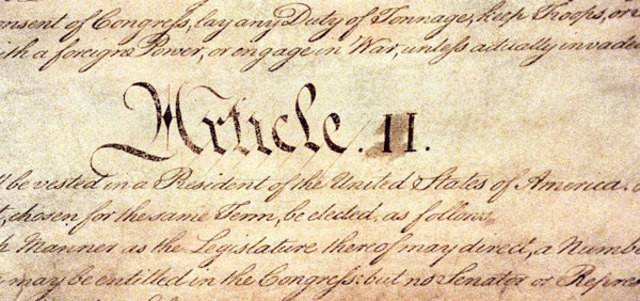 onsent of Congress, lay any Duty of Tonnage, keep Troops, or
ith a foreign Power, or engage in War, unless actually invade
Article. II.
l be vested in a President of the United States of America.
t, chosen for the same Term, be elected, as follows
h Manner as the Legislature thereof may direct, a Numb
may be entitled in the Congress: but no Senator or Repre